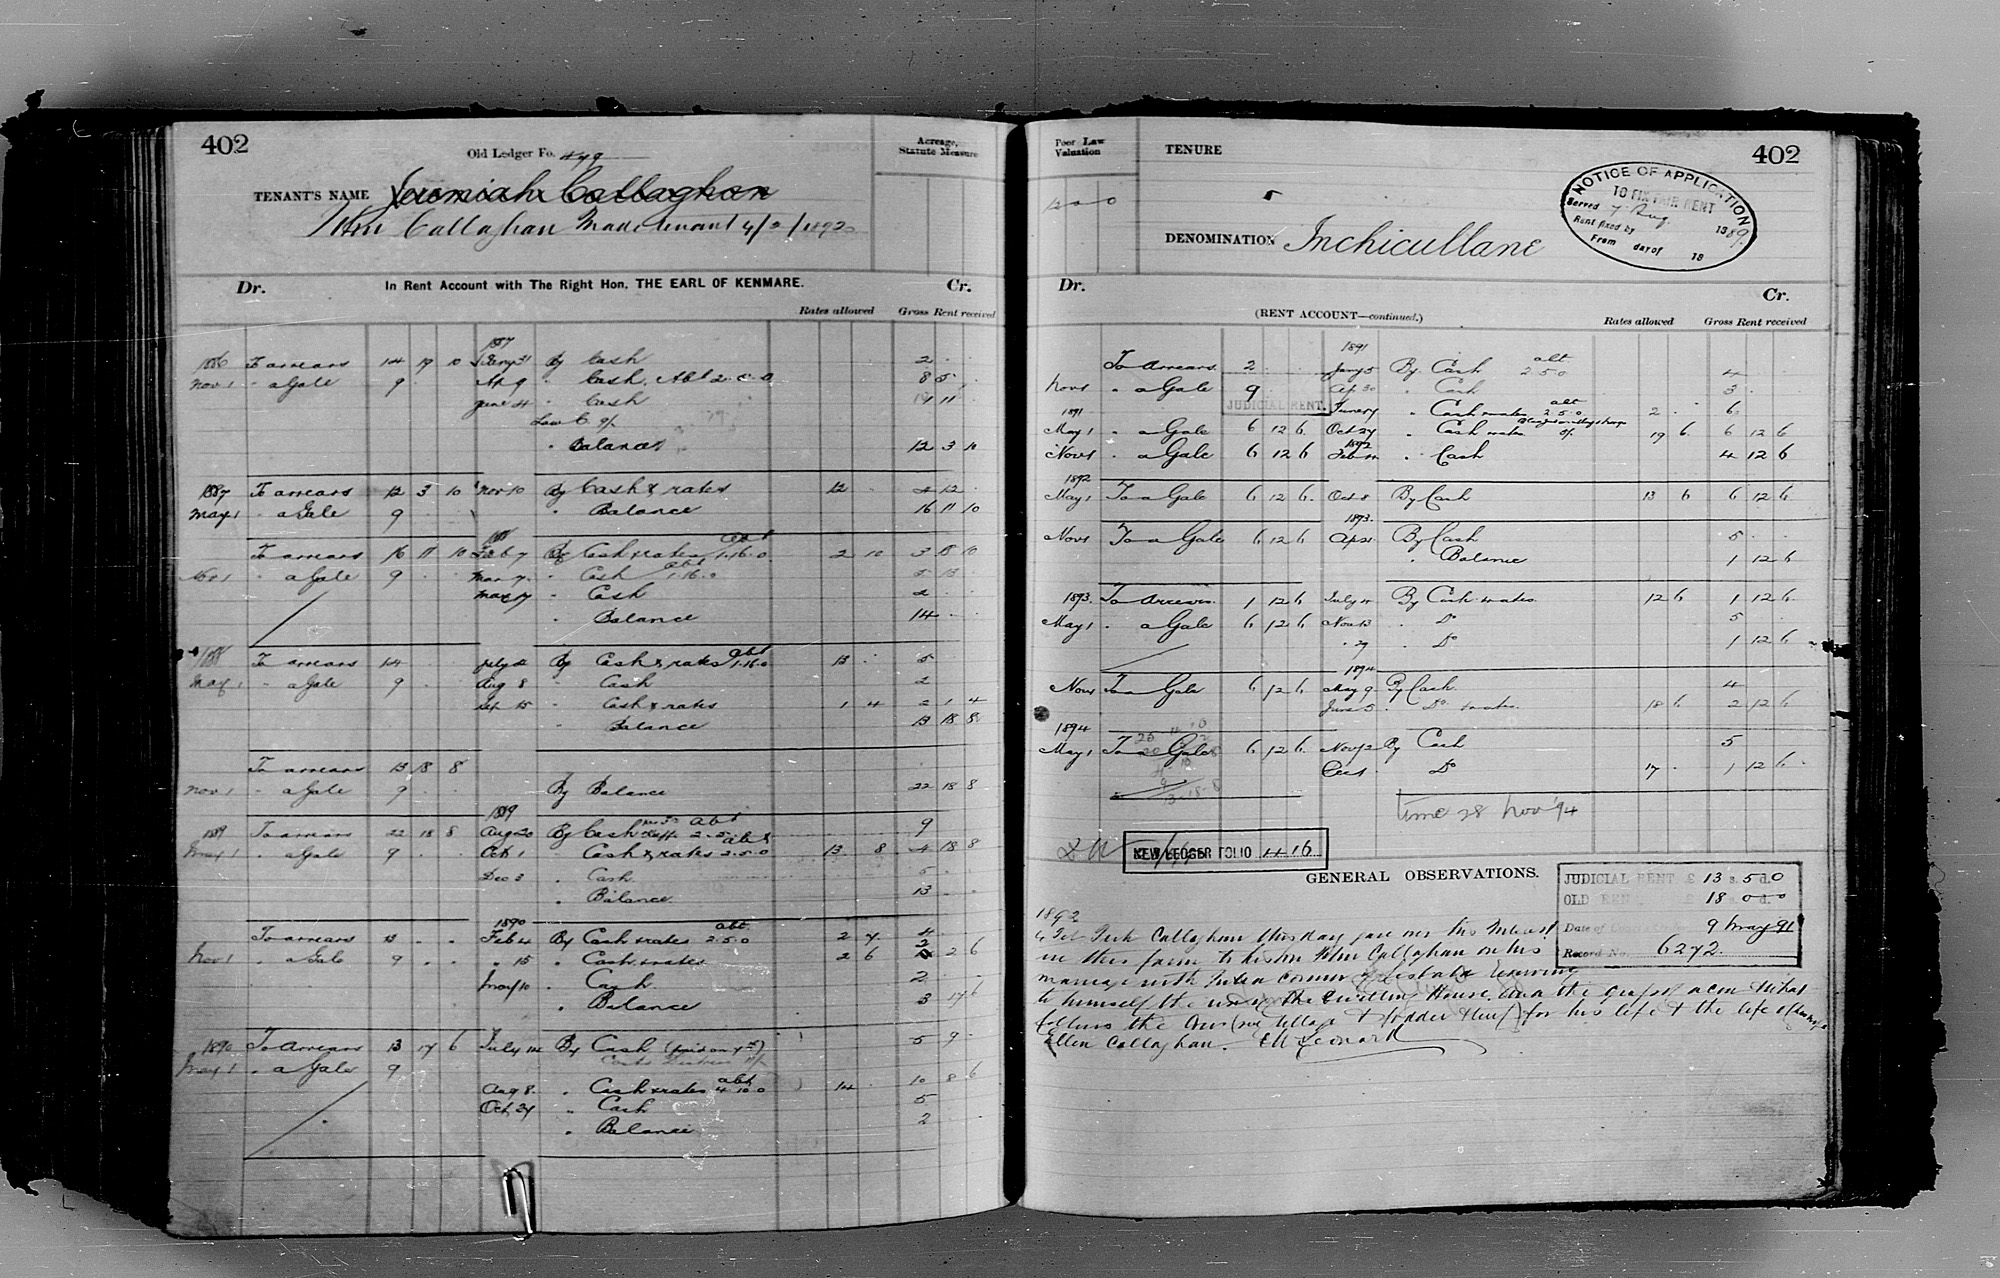 402
Old Ledger Fo. 479
Acreage, Statute Measure
TENANT'S NAME Jeremiah Callaghan
John Callaghan Made tenant 4/2/1892
Dr. In Rent Account with The Right Hon. THE EARL OF KENMARE. Cr.
Rates allowed Gross Rent received
1887
1886 To arrears 14 19 10 Jany 31 By Cash 2 . .
Nov 1 " a Gale 9 . . Ap 9 " Cash. Abt 2.5.0 8 5 .
June 4 " Cash 11
" Balance 12 3 10
1887 To arrears 12 3 10 Nov 10 By Cash & rates 12 . 4 12 .
May 1 " a Gale 9 . . " Balance 16 11 10
1888 abt
To arrears 16 11 10 Feb 7 By Cash & rates 1.16.0 2 10 3 18 10
Nov 1 " a Gale 9 . . Mar 7 " Cash abt 1.16.0 5 13 .
May 17 " Cash 2 . .
" Balance 14 . .
1888 To arrears 14 . . July 4 By Cash & rates abt 1.16.0 13 . 5 . .
May 1 " a Gale 9 . . Aug 8 " Cash 2 . .
Sep 15 " Cash & rates 1 4 2 1 4
" Balance 13 18 8
To arrears 13 18 8
Nov 1 " a Gale 9 . . By Balance 22 18 8
1889
1889 To arrears 22 18 8 Aug 20 By Cash abt 2.5. 9 . .
May 1 " a Gale 9 . . Oct 1 " Cash & rates abt 2.5.0 13 8 4 18 8
Dec 3 " Cash 5 . .
" Balance 13 . .
1890 abt
To arrears 13 . . Feb 4 By Cash & rates 2.5.0 2 7 4
Nov 1 " a Gale 9 . . " 15 " Cash & rates 2 6 2 2 6
May 10 " Cash 2 . .
" Balance 13 17 6
1890 To Arrears 13 17 6 July 14 By Cash (paid on 7th) 5 9 .
May 1 " a Gale 9
Aug 8. " Cash & rates abt 4.10.0 14 . 10 8 6
Oct 24 " Cash 5
" Balance 2
Poor Law Valuation
TENURE
402
NOTICE OF APPLICATION
TO FIX FAIR RENT
Served 7 Aug. 1889.
Rent fixed by
From day of 18
DENOMINATION Inchicullane
Dr. Cr.
(RENT ACCOUNT—continued.) Rates allowed Gross Rent received
1891 abt
To Arrears 2 . . Jany 5 By Cash 2.5.0 4 . .
Nov 1 " a Gale 9 . . Ap 30 " Cash 3 . .
JUDICIAL RENT.
1891 June 17 " Cash & rates abt 2.5.0 2 . 6 .
May 1 " a Gale 6 12 6 Oct 24 " Cash & rates 19 6 6 12 6
1892
Nov 1 " a Gale 6 12 6 Feb " Cash 4 12 6
1892
May 1 To a Gale 6 12 6 Oct 8 By Cash 13 6 6 12 6
1893
Nov 1 To a Gale 6 12 6 Ap 21 By Cash 5 . .
" Balance 1 12 6
1893. To Arrears 1 12 6 July 4 By Cash & rates 12 6 1 12 6
May 1 " a Gale 6 12 6 Nov 13 " Do 5 .
" 27 " Do 1 12 6
1894
Nov 1 To a Gale 6 12 6 May 9 By Cash 4
June 5 " Do & rates 18 6 2 12 6
1894
May 1 To a Gale 6 12 6 Nov 12 By Cash 5
Dec 1 Do 17 . 1 12 6
13.18.8
time 28 Nov '94
NEW LEDGER FOLIO 416
GENERAL OBSERVATIONS.
JUDICIAL RENT £ 13 s. 5 d. 0
OLD RENT £ 18 0 0
Date of 9 May 91
Record No. 6272
1892
4 Feb Jerh Callaghan this day gave over his Interest
in this farm to his son John Callaghan on his
marriage with Julia Connor of reserving
to himself the use of the dwelling House. and the grass of a cow that
follows the Cows for his life & the life of
Ellen Callaghan. Leonard